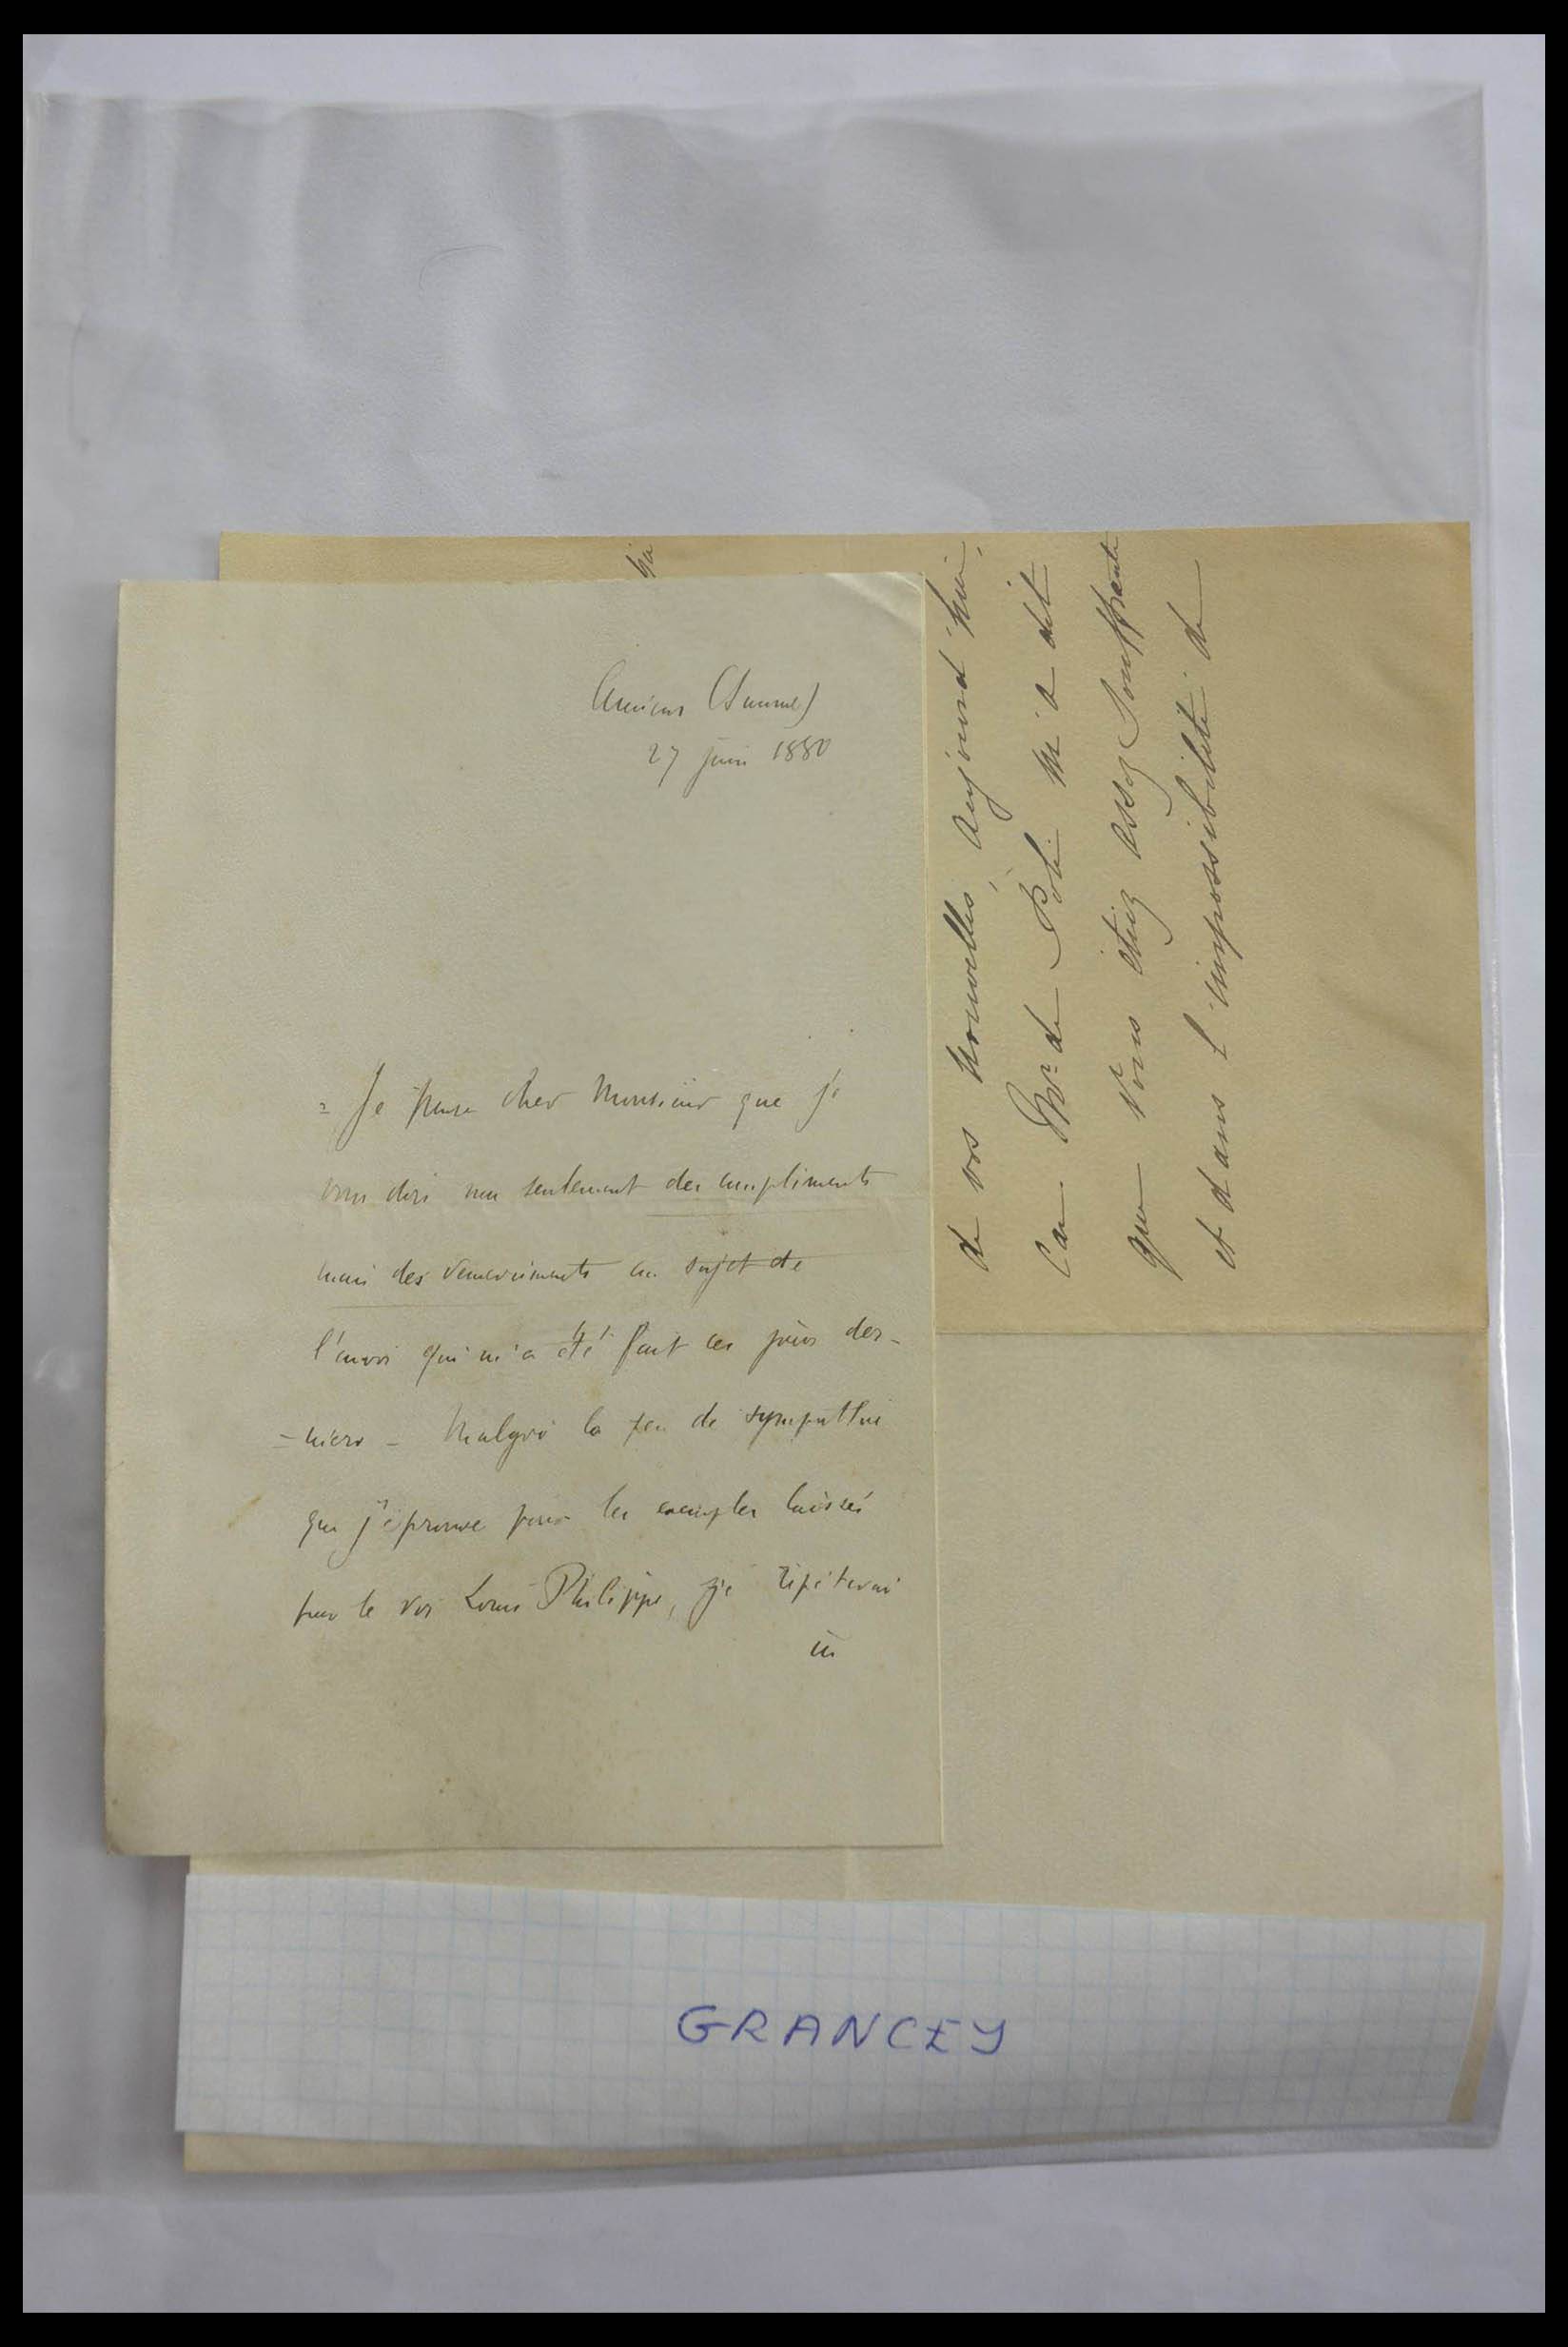 Amiens (Somme)
27 juin 1880
= Je pense cher Monsieur que je
vous dois non seulement des compliments
mais des remerciments au sujet de
l'envoi qui m'a été fait ces jours der-
-niers - Malgré le peu de sympathie
que j'éprouve pour les exemples laissés
par le roi Louis Philippe, je répéterai
ici
de vos nouvelles, aujourd'hui,
Car Mr de Poli m'a dit
que vous étiez assez Souffrante
et dans l'impossibilité de
GRANCEY